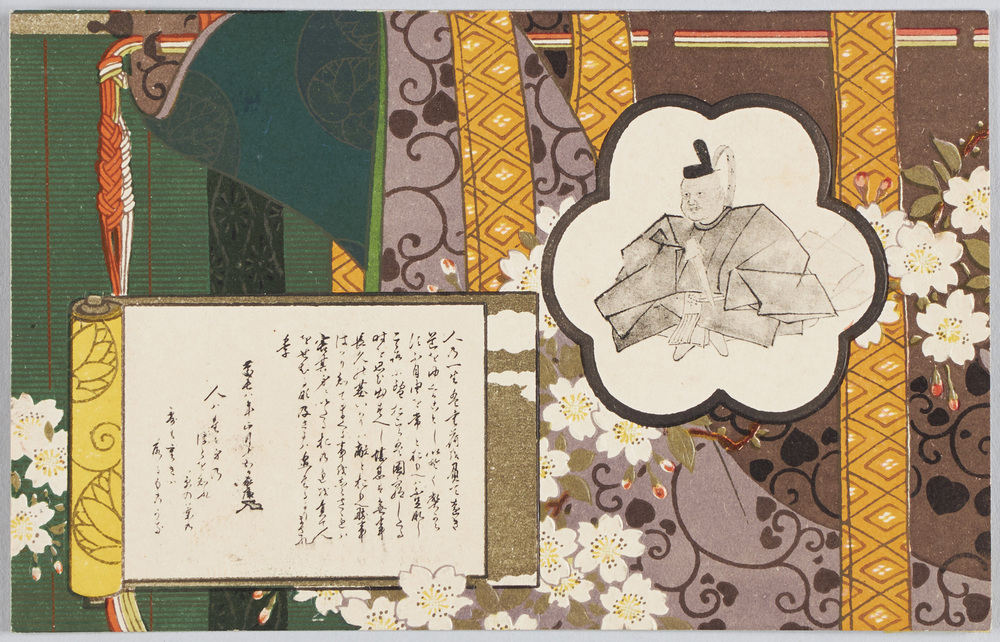 人乃一生は重荷を負て遠き
道をゆくかことしいそくへから
す不自由を常とおもへは不足なし
こゝろに望おこらは困窮したる
時を思ひ出すへし堪忍は無事
長久の基いかりは敵とおもへ勝事
はかり知てまくる事をしらされは
害其身にいたるおのれを責て人
をせむるな及はさるは過たるよりまされ
り
慶長八年正月十五日
人ハたゝ身乃
ほとを知れ
草の葉の
露も重きハ
落るものかな